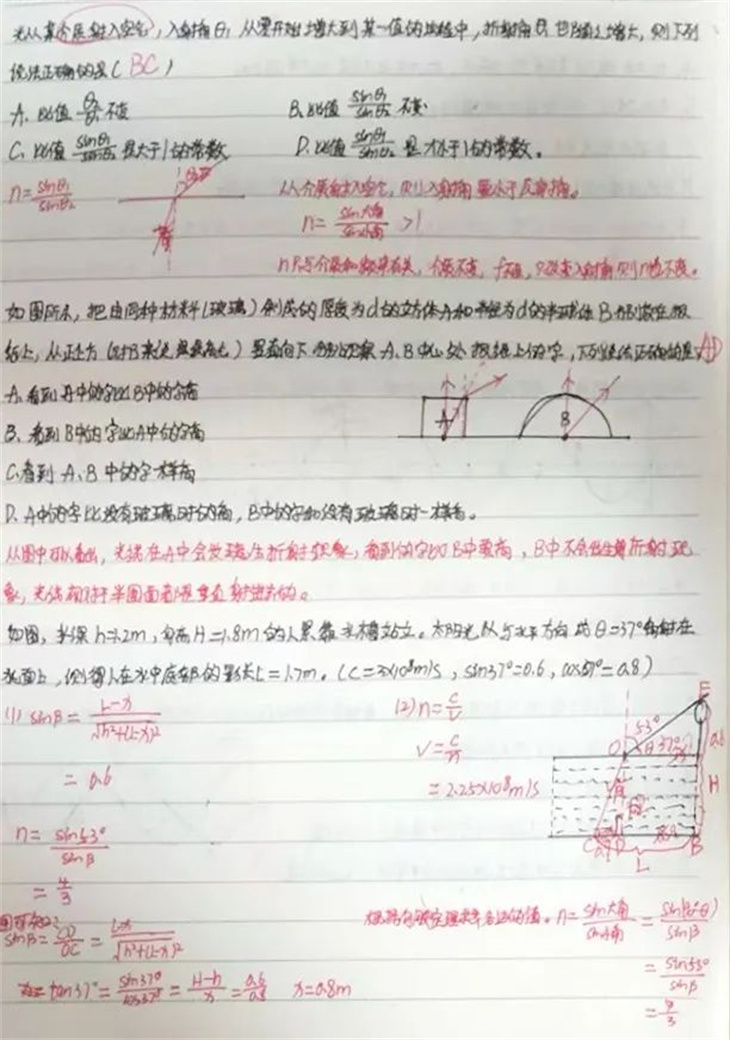 光从某介质射入空气,入射角θ₁从零开始增大到某一值的过程中,折射角θ₂也随之增大,则下列
说法正确的是(BC)
A、比值 θ₁/θ₂ 不变
B、比值 sinθ₁/sinθ₂ 不变
C、比值 sinθ₁/sinθ₂ 是大于1的常数
D、比值 sinθ₁/sinθ₂ 是小于1的常数。
n=sinθ₁/sinθ₂
从介质射入空气,则入射角 小于 射角。
n=sin大角/sin小角 >1
n只与介质和频率有关,介质不变,f不变,只改变入射角则n也不变。
如图所示,把由同种材料(玻璃)制成的厚度为d的立方体A和半径为d的半球体B分别放在报
纸上,从正上方(对B来说是最高点)竖直向下分别观察A、B中心处报纸上的字,下列说法正确的是 AD
A、看到A中的字比B中的字高
B、看到B中的字比A中的字高
C、看到A、B中的字一样高
D、A中的字比没有玻璃时的高,B中的字和没有玻璃时一样高。
A
B
从图中可以看出,光线在A中会发 生折射现象,看到的字比B中要高,B中不会发生 折射现
象,光线相对于半圆面都是垂直射出去的。
如图,水深h=1.2m,身高H=1.8m的人 水槽站立。太阳光以与水平方向成θ=37°角射在
水面上,测得人在水中底部的影长L=1.7m。(C=3×10⁸m/s,sin37°=0.6,cos37°=0.8)
(1) sinβ=(L-x)/√(h²+(L-x)²)
=0.6
n=sin53°/sinβ
=4/3
(2) n=c/v
v=c/n
=2.25×10⁸m/s
E
53°
O
θ
37°
0.6
H
C
D
B
L
sinβ=CD/OC=(L-x)/√(h²+(L-x)²)
tan37°=sin37°/cos37°=(H-h)/x=0.6/0.8 x=0.8m
n=sin大角/sin小角=sin(90°-θ)/sinβ
=sin53°/sinβ
=4/3